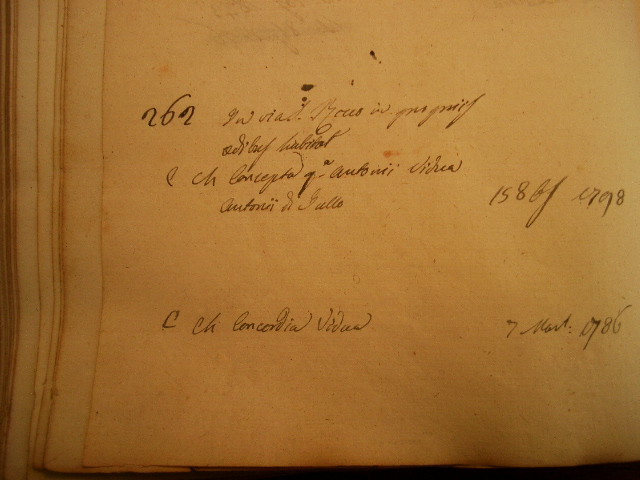 262 In via S. Rocco in propriis
ędibus habitat
C Ch Concepta q.m Antonii Vidua
Antonii di Jullo 15 8bs 1798
C Ch Concordia Vidua 7 Mart: 1786